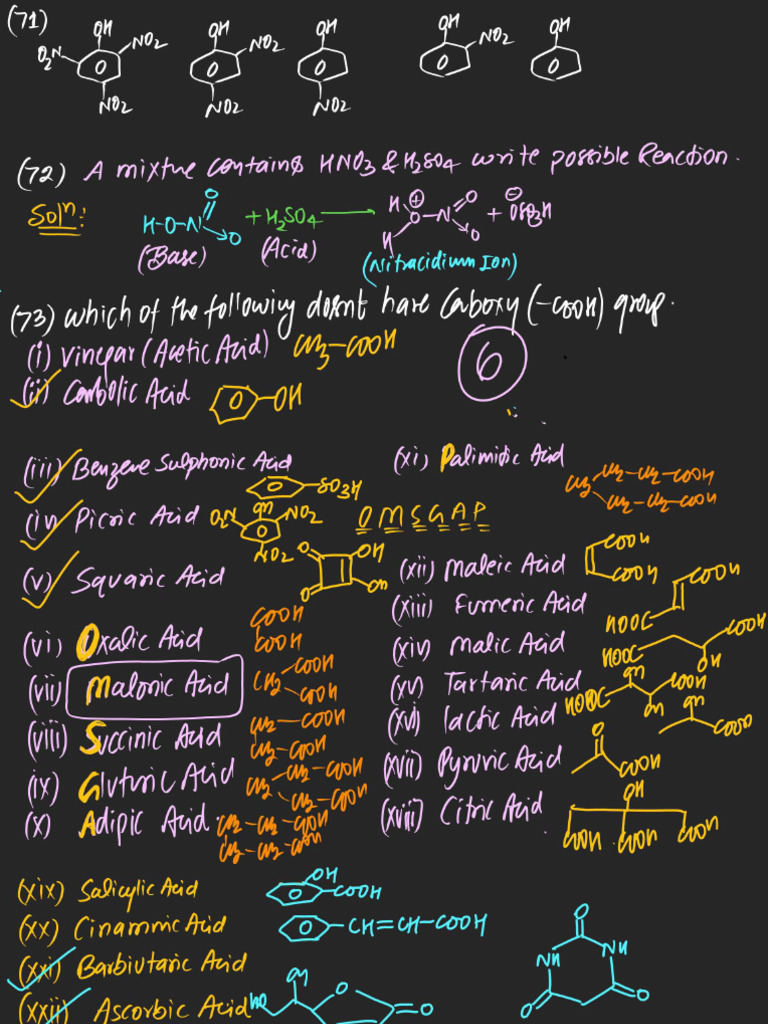 (71)
OH OH OH OH OH
O2N NO2 NO2 NO2
NO2 NO2 NO2
(72) A mixture contains HNO3 & H2SO4 write possible Reaction.
Soln: H-O-N O O + H2SO4 → H O N O O H + OSO3H
(Base) (Acid) (Nitracidium Ion)
(73) which of the following doesnt have Carboxy (-COOH) group.
(i) Vinegar (Acetic Acid) CH3-COOH
6
(ii) Carbolic Acid OH
(iii) Benzene Sulphonic Acid SO3H
(iv) Picric Acid O2N OH NO2 NO2
OMSGAP
(v) Squaric Acid O O OH OH
(vi) Oxalic Acid COOH COOH
(vii) Malonic Acid CH2 COOH COOH
(viii) Succinic Acid CH2-COOH CH2-COOH
(ix) Gluturic Acid CH2 CH2-COOH CH2-COOH
(x) Adipic Acid CH2-CH2-COOH CH2-CH2-COOH
(xi) Palimidic Acid CH2 CH2-CH2-COOH CH2-CH2-COOH
(xii) Maleic Acid COOH COOH
(xiii) Fumeric Acid COOH HOOC
(xiv) Malic Acid HOOC COOH OH
(xv) Tartaric Acid HOOC OH COOH OH
(xvi) lactic Acid OH COOH
(xvii) Pyruvic Acid O COOH
(xviii) Citric Acid OH COOH COOH COOH
(xix) Salicylic Acid OH COOH
(xx) Cinammic Acid CH=CH-COOH
(xxi) Barbiutaric Acid O NH NH O O
(xxii) Ascorbic Acid HO OH O =O